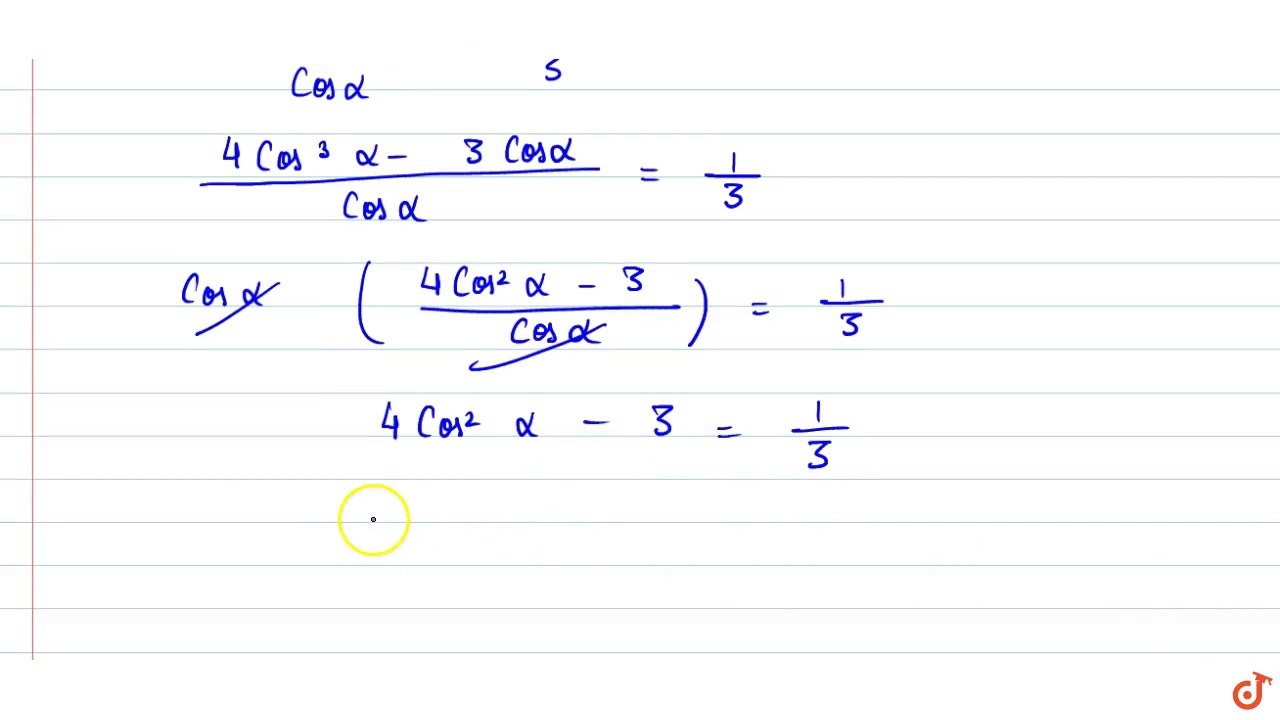 Cos α 5
4 Cos³ α - 3 Cos α / Cos α = 1/3
Cos α ( 4 Cos² α - 3 / Cos α ) = 1/3
4 Cos² α - 3 = 1/3